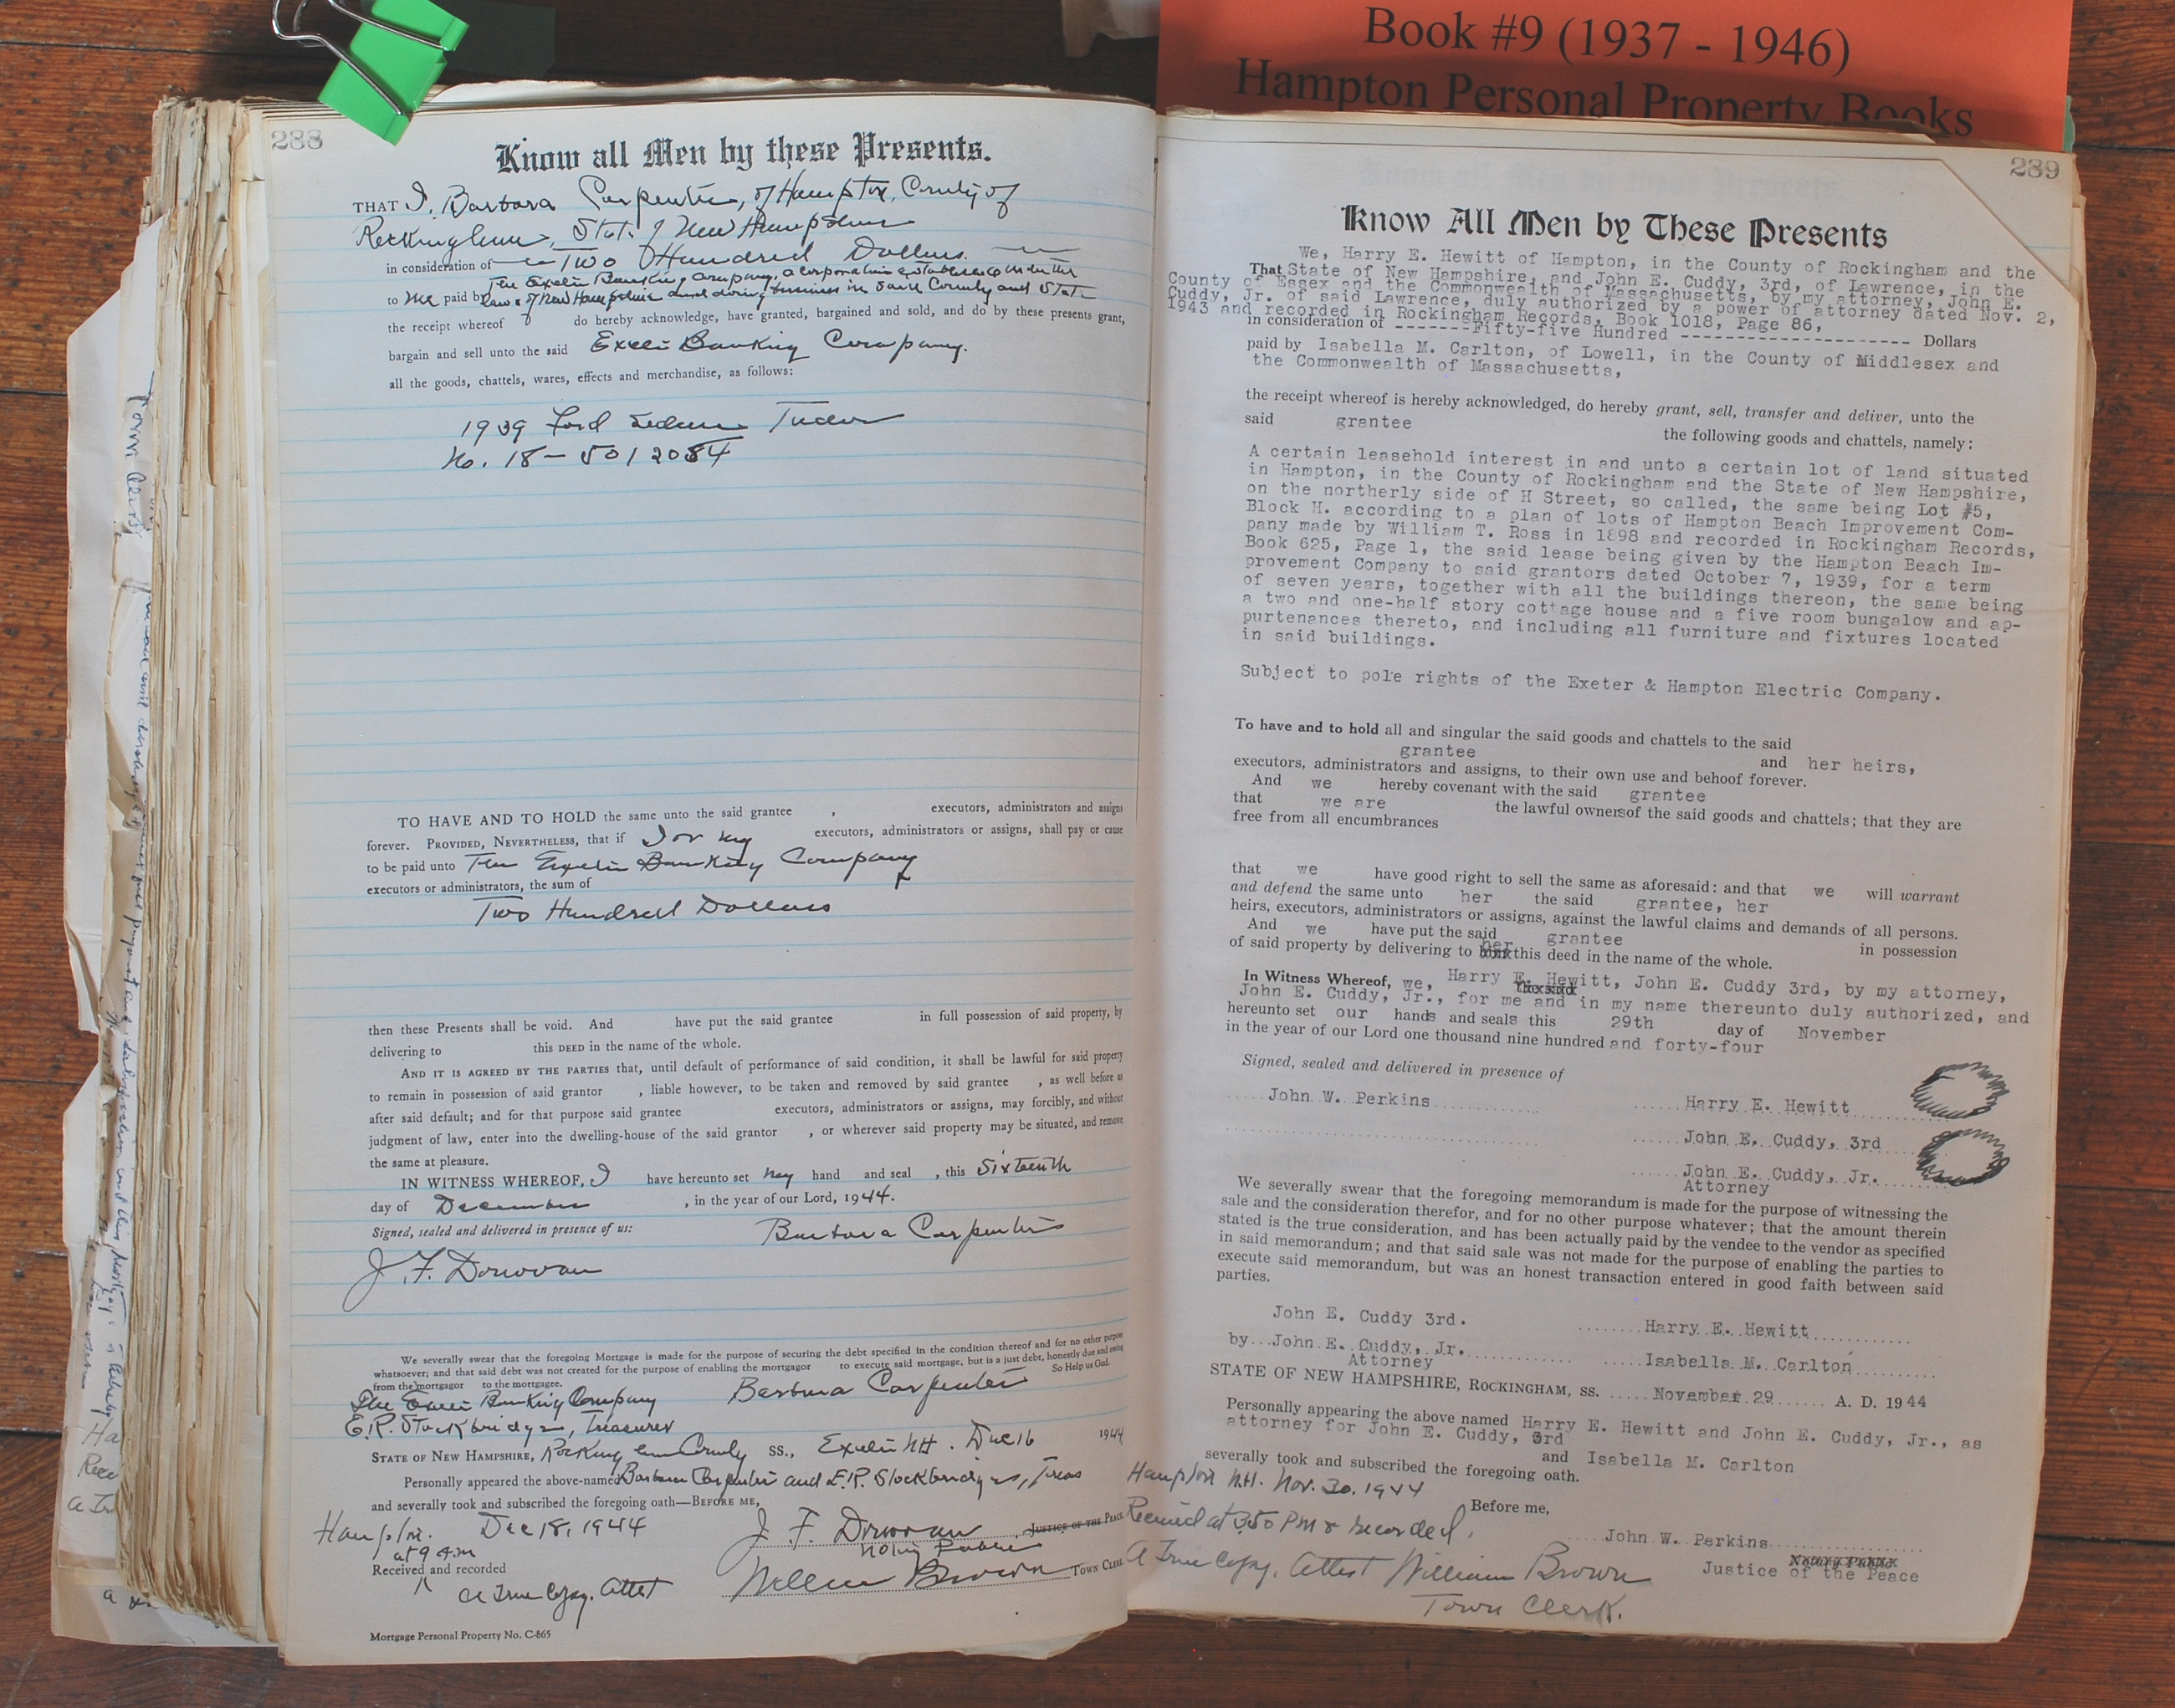 Book #9 (1937 - 1946)
Hampton Personal Property Books
288
Know all Men by these Presents.
THAT I, Barbara Carpenter, of Hampton, County of
Rockingham, State of New Hampshire
in consideration of Two Hundred Dollars.
to me paid by The Exeter Banking Company, a corporation established under the
laws of New Hampshire and doing business in said County and State
the receipt whereof do hereby acknowledge, have granted, bargained and sold, and do by these presents grant,
bargain and sell unto the said Exeter Banking Company.
all the goods, chattels, wares, effects and merchandise, as follows:
1939 Ford Sedan Tudor
No. 18-5012084
TO HAVE AND TO HOLD the same unto the said grantee , executors, administrators and assigns
forever. PROVIDED, NEVERTHELESS, that if I or my executors, administrators or assigns, shall pay or cause
to be paid unto The Exeter Banking Company
executors or administrators, the sum of
Two Hundred Dollars
then these Presents shall be void. And have put the said grantee in full possession of said property, by
delivering to this DEED in the name of the whole.
AND IT IS AGREED BY THE PARTIES that, until default of performance of said condition, it shall be lawful for said property
to remain in possession of said grantor , liable however, to be taken and removed by said grantee , as well before as
after said default; and for that purpose said grantee executors, administrators or assigns, may forcibly, and without
judgment of law, enter into the dwelling-house of the said grantor , or wherever said property may be situated, and remove
the same at pleasure.
IN WITNESS WHEREOF, I have hereunto set my hand and seal , this Sixteenth
day of December , in the year of our Lord, 1944.
Signed, sealed and delivered in presence of us: Barbara Carpenter
J. F. Donovan
We severally swear that the foregoing Mortgage is made for the purpose of securing the debt specified in the condition thereof and for no other purpose
whatsoever; and that said debt was not created for the purpose of enabling the mortgagor to execute said mortgage, but is a just debt, honestly due and owing
from the mortgagor to the mortgagee. So Help us God.
The Exeter Banking Company Barbara Carpenter
E.R. Stockbridge, Treasurer
STATE OF NEW HAMPSHIRE, Rockingham County SS., Exeter NH. Dec 16 1944
Personally appeared the above-named Barbara Carpenter and E.R. Stockbridge, Treas
and severally took and subscribed the foregoing oath—BEFORE ME,
Hampton. Dec 18, 1944 J. F. Donovan JUSTICE OF THE PEACE
at 9 am Notary Public
Received and recorded
A True Copy. Attest William Brown TOWN CLERK
Mortgage Personal Property No. C-865
289
Know All Men by These Presents
We, Harry E. Hewitt of Hampton, in the County of Rockingham and the
That State of New Hampshire, and John E. Cuddy, 3rd, of Lawrence, in the
County of Essex and the Commonwealth of Massachusetts, by my attorney, John E.
Cuddy, Jr. of said Lawrence, duly authorized by a power of attorney dated Nov. 2,
1943 and recorded in Rockingham Records, Book 1018, Page 86,
in consideration of -------Fifty-five Hundred --------------------- Dollars
paid by Isabella M. Carlton, of Lowell, in the County of Middlesex and
the Commonwealth of Massachusetts,
the receipt whereof is hereby acknowledged, do hereby grant, sell, transfer and deliver, unto the
said grantee the following goods and chattels, namely:
A certain leasehold interest in and unto a certain lot of land situated
in Hampton, in the County of Rockingham and the State of New Hampshire,
on the northerly side of H Street, so called, the same being Lot #5,
Block H. according to a plan of lots of Hampton Beach Improvement Com-
pany made by William T. Ross in 1898 and recorded in Rockingham Records,
Book 625, Page 1, the said lease being given by the Hampton Beach Im-
provement Company to said grantors dated October 7, 1939, for a term
of seven years, together with all the buildings thereon, the same being
a two and one-half story cottage house and a five room bungalow and ap-
purtenances thereto, and including all furniture and fixtures located
in said buildings.
Subject to pole rights of the Exeter & Hampton Electric Company.
To have and to hold all and singular the said goods and chattels to the said
grantee and her heirs,
executors, administrators and assigns, to their own use and behoof forever.
And we hereby covenant with the said grantee
that we are the lawful owners of the said goods and chattels; that they are
free from all encumbrances
that we have good right to sell the same as aforesaid: and that we will warrant
and defend the same unto her the said grantee, her
heirs, executors, administrators or assigns, against the lawful claims and demands of all persons.
And we have put the said grantee in possession
of said property by delivering to her this deed in the name of the whole.
In Witness Whereof, we, Harry E. Hewitt, John E. Cuddy 3rd, by my attorney,
John E. Cuddy, Jr., for me and in my name thereunto duly authorized, and
hereunto set our hands and seals this 29th day of November
in the year of our Lord one thousand nine hundred and forty-four
Signed, sealed and delivered in presence of
John W. Perkins Harry E. Hewitt
John E. Cuddy, 3rd
John E. Cuddy, Jr.
Attorney
We severally swear that the foregoing memorandum is made for the purpose of witnessing the
sale and the consideration therefor, and for no other purpose whatever; that the amount therein
stated is the true consideration, and has been actually paid by the vendee to the vendor as specified
in said memorandum; and that said sale was not made for the purpose of enabling the parties to
execute said memorandum, but was an honest transaction entered in good faith between said
parties.
John E. Cuddy 3rd. Harry E. Hewitt
by John E. Cuddy, Jr. Isabella M. Carlton
Attorney
STATE OF NEW HAMPSHIRE, ROCKINGHAM, SS. November 29 A. D. 1944
Personally appearing the above named Harry E. Hewitt and John E. Cuddy, Jr., as
attorney for John E. Cuddy, 3rd and Isabella M. Carlton
severally took and subscribed the foregoing oath.
Hampton N.H. Nov. 30. 1944 Before me,
Received at 3:50 PM & recorded,
John W. Perkins
A True Copy, Attest William Brown Notary Public
Justice of the Peace
Town Clerk.